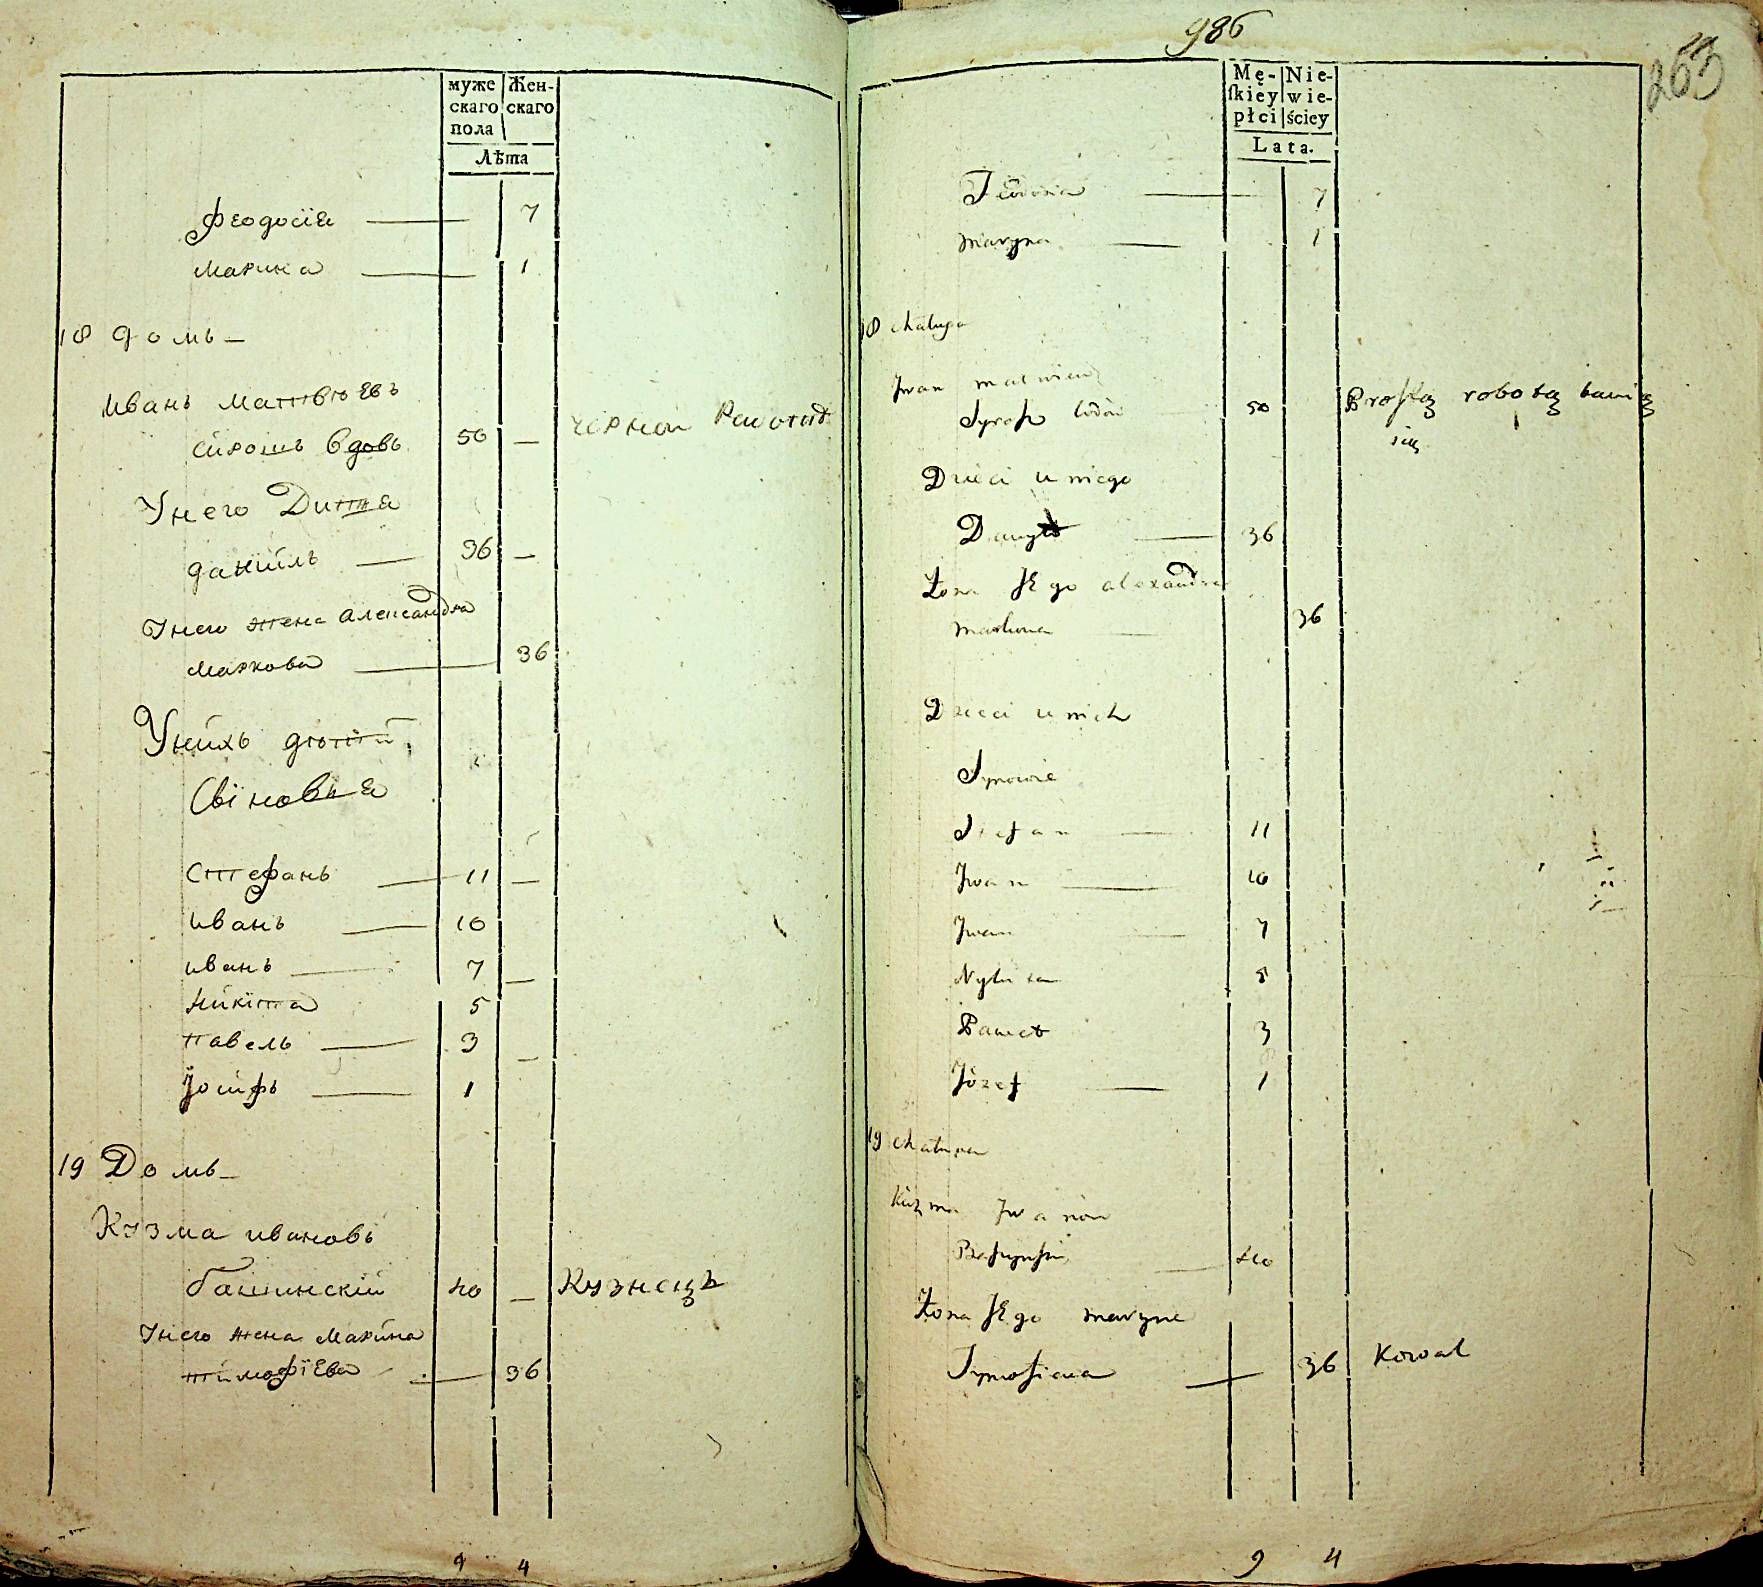 муже Жен-
скаго скаго
пола
Лѣта
Феодосїя — 7
Марина — 1
18 домъ —
Иванъ Матвѣевъ
Сирошъ вдовъ 50 — черной работой
У него Дитя
данийлъ — 36 —
У него жена Александра
Маркова — 36
У нихъ дѣтй
Сыновья
Стефанъ — 11 —
Иванъ — 10
Иванъ — 7 —
Никїта 5
Павелъ — 3 —
Їосифъ — 1
19 Домъ —
Кузма ивановъ
Башинскїй 40 — Кузнецъ
У него жена Марина
тимофїева — 36
9 4
986
263
Mę- Nie-
ſkiey wie-
płci ściey
Lata.
Teodosia — 7
Maryna — 1
18 chałupa
Jwan
50 Prostą robotą bawią
się
Dzieci u niego
36
Żona JEgo alexandra
Markowa — 36
Dzieci u nich
Synowie
Stefan — 11
Jwan — 10
Jwan — 7
Nykita 5
Paweł 3
Józef — 1
19 chałupa
Kuzma Jwanow
— 40
Żona JEgo maryna
Tymofiewa — 36 Kowal
9 4